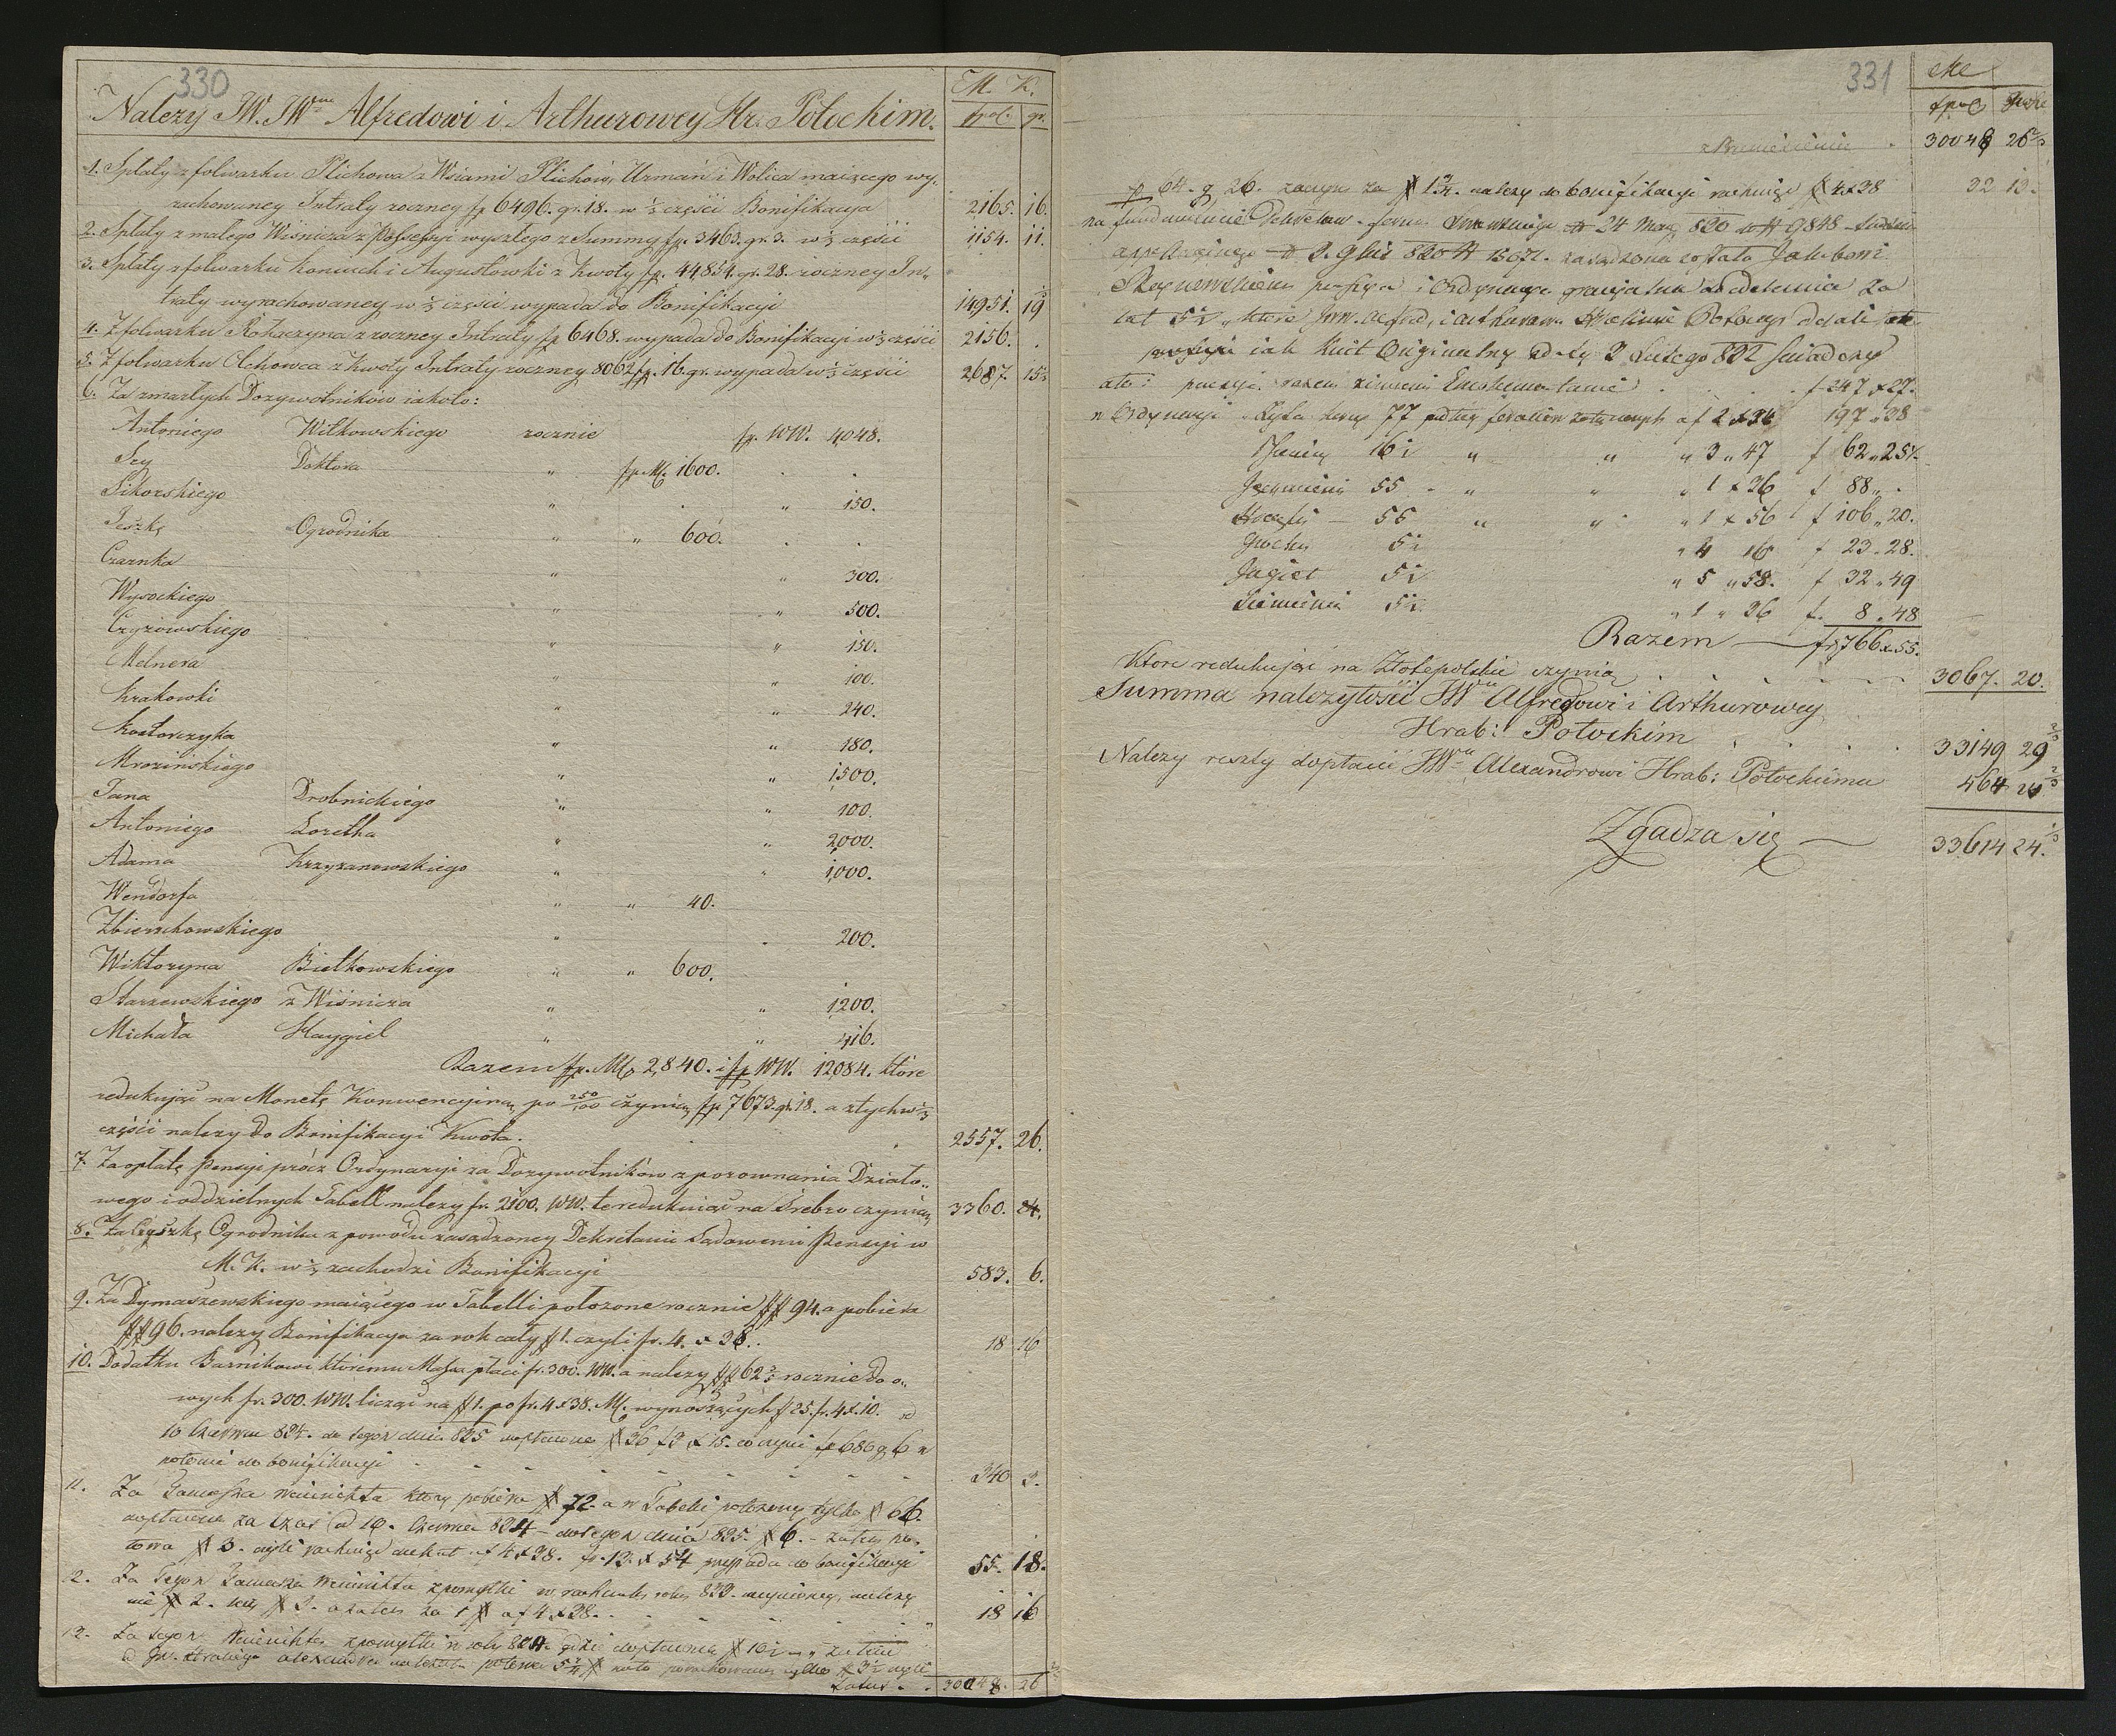 330
Nalezy JW. JWne Alfredowi i Arthurowey Hr. Potockim.
M. K.
fpol. gr.
1. Spłaty z folwarku Plichowa z Wsiami Plichów, Urmań i Wolica maiącego wy-
rachowaney Intraty roczney fp 6496. gr. 18. w ⅓ części Bonifikacya 2165. 16.
2. Spłaty z małego Wiśnicza z Possessyi wyszłego z Summy fp. 3463. gr. 3. w ⅓ części 1154. 11.
3. Spłaty z folwarku Koniuch i Augustowki z Kwoty fp. 44854. gr. 28. roczney In-
traty wyrachowaney w ⅓ części wypada do Bonifikacyi 14951. 19
4. Z folwarku Rohaczyna z roczney Intraty fp 6468. wypada do Bonifikacyi w ⅓ części 2156. .
5. Z folwarku Olchowca z Kwoty Intraty roczney 8062 fp. 16. gr. wypada w ⅓ części 2687. 15⅓
6. Za zmarłych Dozywotników iakoto:
Antoniego Witkowskiego rocznie fr. WW. 4,048.
Sey Doktora " fr. M. 1600. . .
Sikorskiego " . " 150.
Jeszkę Ogrodnika " " 600. . .
Czarnka " " 300.
Wysockiego " " 500.
Czyżowskiego " " 150.
Melnera " " 100.
Krakowki " " 240.
Kostorczyka " " 180.
Mrozińskiego " " 1,500.
Jana Drobnickiego " " 100.
Antoniego Loretha " " 2,000.
Adama Krzyzanowskiego " " 1,000.
Wendorfa " " 40.
Zbierzchowskiego " . 200.
Wiktoryna Bielkowskiego " " 600.
Starzewskiego z Wiśnicza " " 1,200.
Michała Haygiel " " 416.
Razem fr. M. 2,840. i fr. WW. 12,084. które
redukuiąc na Monetę Konwencyiną po 250/100 czynią fp 7673. gr. 18. a z tych w ⅓
części nalezy do Bonifikacyi Kwota. 2557. 26.
7. Za opłatę Pensyi prócz Ordynaryi za Dozywotników z porownania Działo-
wego i oddzielnych Tabell nalezy fr. 2100. WW. te redukuiąc na Srebro czynią 3360. 24.
8. Za Cyszkę Ogrodnika z powodu zasądzoney Dekretami Sadowemi Pensyi w
M. K. w ⅓ zachodzi Bonifikacyi 583. 6.
9. Za Dymaszewskiego maiącego w Tabelli połozone rocznie ## 94. a pobiera
## 96. nalezy Bonifikacya za rok cały # 1. czyli fr. 4. x 38. 18 16
10. Dodatku Barnikowi ktoremu Massa płaci fr. 300. WW. a nalezy ## 62 rocznie do o-
wych fr. 300. WW. licząc na # 1. po fr. 4 x 38. M. wynoszących # 25. fr. 4 x 10. od
16 Czerwca 824. do tegoż dnia 825 dopłacono # 36 f 3 x 15. co czyni fp 680 g 6 a
połowa do bonifikacyi 340 3.
11. Za Tomasza Woiniththa ktory pobiera # 72. a w Tabelli położony tylko # 66.
dopłacono za czas od 16. Czerwca 824 – do tegoż dnia 825. # 6. – zatem po-
łowa # 3. czyli rachuiąc dukat af 4 x 38. fr. 13. x 54 przypada do bonifikacyi 55. 18.
12. Za Tegoż Tomasza Woiniththa z pomyłki w rachunku roku 823. należy
# 2. # 3. a zatem za 1 # af 4 x 38. 18 16
13. Za tegoż z pomyłki w roku 824 gdzie dopłacono # 10½ " zatem
połowa 5¼ # tylko # 3½ czyli
Latus 30048. 26⅔
331
Mk
fpol gr
z Przeniesienia . 30048 26⅔
fp 64. g 26. zaczym za # 1¾. należy do bonifikacyi rachuiąc # 4 x 38 32 13.
na fundamencie Dekretow 24 Maja 820 do # 9848 Sądu
appellacyinego 820 # 15071. zasądzona została Jakubowi
pensya i Ordynarya za
lat 5½, które Jww. Alfred, i Arthurowa Hrabiowie Potoccy
iak kwit Originalny z daty 3 Lutego 822 świadczy
ato: pensyi razem f 247 x 27.
w Ordynaryi Zyta korcy 77 af 2 x 34 197 " 38
Pszenicy 16½ " " " 3 " 47 f 62 " 25½
Jęczmienia 55 - " " " 1 x 36 f 88 " .
Hreczki – 55 " " " 1 x 56 f 106 " 20.
Grochu 5½ " 4 16 f 23 - 28.
Jagieł 5½ " 5 " 58. f 32 " 49
Siemienia 5½ " 1 " 36 f. 8 . 48
Razem — fr 766 x 55.
Ktore redukuiąc na Złotepolskie czynią 3067. 20.
Summa nalezytości JWu Alfredowi i Arthurowey
Hrab: Potockim 33149 29⅔
Nalezy reszty dopłacić JWu Alexandrowi Hrab: Potockiemu 464 24⅔
Zgadza się — 33614 24.⅓